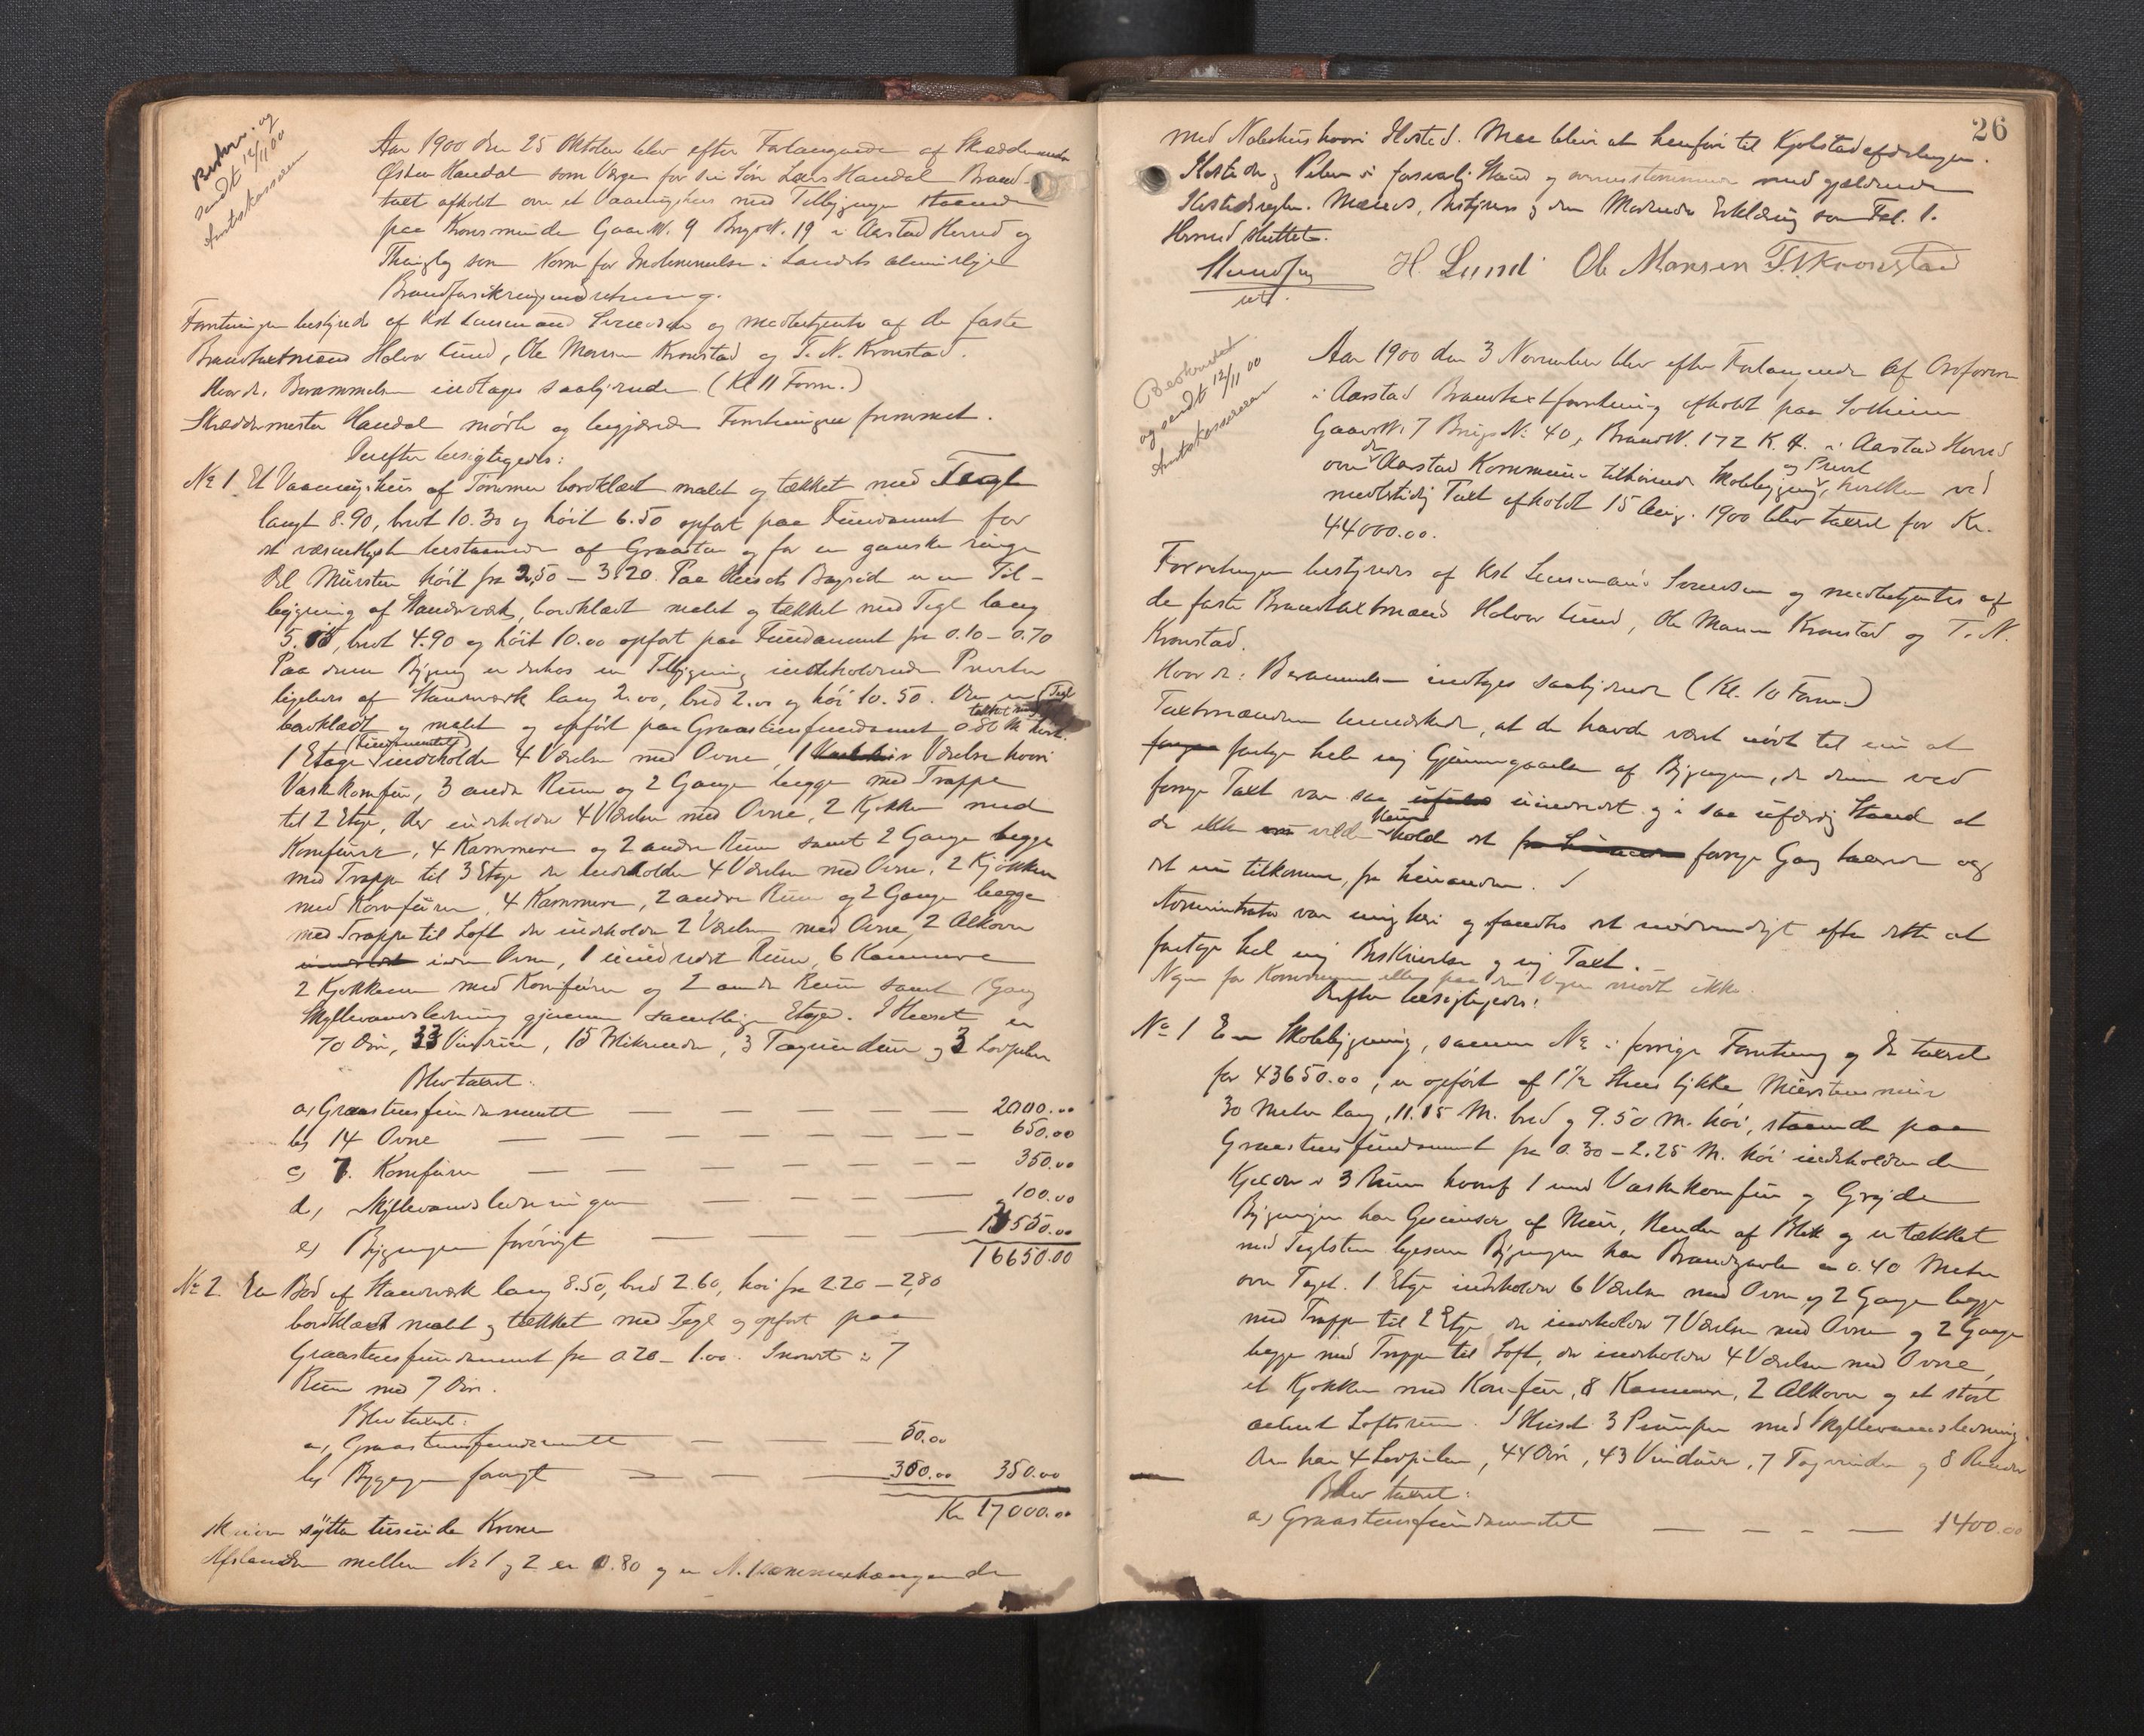 Beskr. og
sendt 12/11 00
Amtskassereren
Aar 1900 den 25 Oktober blev efter Forlangende af Skræddermester
Østen Handal som Værge for sin Søn Lars Handal Brand-
taxt afholdt over et Vaaningshus med Tilbygninger staaende
paa Kronsminde Gaards N. 9 Brugs N. 19 i Aarstad Herred og
Thinglag som Norm for Indlemmelse i Landets almindelige
Brandforsikringsindretning.
Forretningen bestyredes af Kst Lensmand Svendsen og medbetjentes af de faste
Brandtaxtmænd Halvor Lund, Ole Monsen Kronstad og T. N. Kronstad.
Hvor da: Berammelsen indtages saalydende (Kl 11 Form.)
Skræddermester Handal mødte og begjærede Forretningen fremmet.
Derefter besigtigedes:
No 1 Et Vaaningshus af Tømmer bordklædt malet og tækket med Tegl
langt 8.90, bredt 10.30 og høit 6.50 opført paa Fundament for
det væsentligste bestaaende af Graasten og for en ganske ringe
Del Mursten høit fra 2,50 – 3.20. Paa Husets Bagside er en Til-
bygning af Standværk, bordklædt malet og tækket med Tegl lang
5. , bredt 4.90 og høit 10.00 opført paa Fundament fra 0.10 – 0.70
Paa denne Bygning er derhos en Tilbygning indeholdende Priveter
ligeledes af Standværk lang 2.00, bred 2.00 og høi 10.50. Den er (Tegl
tækket med
bordklædt og malet og opført paa Graastensfundament 0.80 M høit.
(Fundamentet)
1 Etage indeholder 4 Værelser med Ovne, 1 Værelse hvori
Vaskekomfur, 3 andre Rum og 2 Gange begge med Trappe
til 2 Etage, der indeholder 4 Værelser med Ovne, 2 Kjøkken med
Komfurer, 4 Kammere og 2 andre Rum samt 2 Gange begge
med Trappe til 3 Etage der indeholder 4 Værelser med Ovne, 2 Kjøkken
med Komfurer, 4 Kammere, 2 andre Rum og 2 Gange begge
med Trappe til Loft der indeholder 2 Værelser med Ovne, 2 Alkover
uden Ovne, 1 uindredet Rum, 6 Kammere
2 Kjøkkener med Komfurer og 2 andre Rum samt Gang
Skyllevandsledning gjennem samtlige Etager. I Huset er
70 Døre, 33 Vinduer, 15 , 3 Tagvinduer og 3 Lovpiber
Blev taxeret:
a, Graastensfundamentet — — — — — 2000.00
b, 14 Ovne — — — — — — — 650.00
c, 7. Komfurer — — — — — — — 350.00
d, Skyllevandsledningen — — — — — 100.00
e, Bygningen forøvrigt — — — — 13550.00
16650.00
No 2. En Bod af Standværk lang 8.50, bred 2.60, høi fra 2.20 – 2,80
bordklædt malet og tækket med Tegl og opført paa
Graastensfundament fra 0.20 – 1.00. Indredet i 7
Rum med 7 Døre.
Blev taxeret:
a, Graastensfundamentet — — — 50.00
b, Bygningen forøvrigt — — — 300.00 350.00
Kr 17000.00
skriver sytten tusinde Kroner
Afstanden mellem No 1 og 2 er 0.80 og er N. 1 sammenhængende
26
med Nabohus hvori Ildsted. Maa blive at henføre til Kjøbstadafdelingen.
Ildsteder og Piber i forsvarlig Stand og overensstemmende med gjældende
Ildstedsregler. Mændenes, Bestyrers og den Mødendes Erklæring som Fol. 1.
Hermed sluttet.
Svendsen H. Lund Ole Monsen T. N. Kronstad
cst.
Beskrevet
og sendt 12/11 00
Amtskassereren
Aar 1900 den 3 November blev efter Forlangende af Ordføreren
i Aarstad Brandtaxtforretning afholdt paa Solheim
Gaards N. 7 Brugs No 40, Brand N. 172 K. A. i Aarstad Herred
over den Aarstad Kommune tilhørende Skolebygning og Privet, hvilken ved
midlertidig Taxt afholdt 15 Aug. 1900 blev taxeret for Kr.
44000.00.
Forretningen bestyredes af Kst Lensmand Svendsen og medbetjentes af
de faste Brandtaxtmænd Halvor Lund, Ole Monsen Kronstad og T. N.
Kronstad.
Hvor da: Berammelsen indtages saalydende (Kl. 10 Form.)
Taxtmændene bemærkede, at de havde været nødt til nu at
foretage hele ny Gjennemgaaelse af Bygningen, da denne ved
forrige Taxt var saa uindredet og i saa uferdig Stand at
de ikke vilde kunne holde det forrige Gang taxerede og
det nu tilkomne, fra hinanden.
Administrator var enig heri og fandtes det nødvendigt efter dette at
foretage hel ny Beskrivelse og ny Taxt.
Nogen for Kommunen eller paa dens Vegne mødte ikke.
Derefter besigtigedes:
No 1 En Skolebygning, samme No i forrige Forretning og da taxeret
for 43650.00, er opført af 1½ Stens tykke Murstensmure
30 Meter lang, 11.15 M. bred og 9.50 M. høi, staaende paa
Graastensfundament fra 0.30 – 2.25 M. høi indeholdende
Kjælder i 3 Rum hvoraf 1 med Vaskekomfur og Gryde
Bygningen har Gesimser af Mur, Render af Blik og er tækket
med Teglsten ligesom Bygningen har Brandgavler a 0.40 Meter
over Taget. 1 Etage indeholder 6 Værelser med Ovne og 2 Gange begge
med Trappe til 2 Etage der indeholder 7 Værelser med Ovne og 2 Gange
begge med Trappe til Loft, der indeholder 4 Værelser med Ovne
et Kjøkken med Komfur, 8 Kammere, 2 Alkover og et stort
aabent Loftsrum. I Huset 3 Pumper med Skyllevandsledning.
Den har 4 Lovpiber, 44 Døre, 43 Vinduer, 7 Tagvinduer og 8 Render
Blev taxeret:
a, Graastensfundamentet — — — — 1400.00